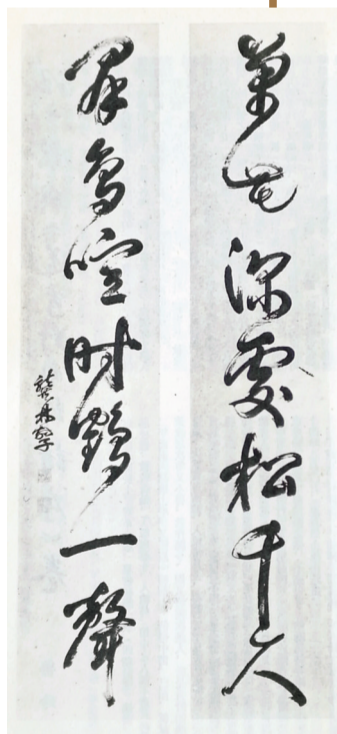 萬花深處松千尺
羣鳥喧時鶴一聲
龔鼎孳